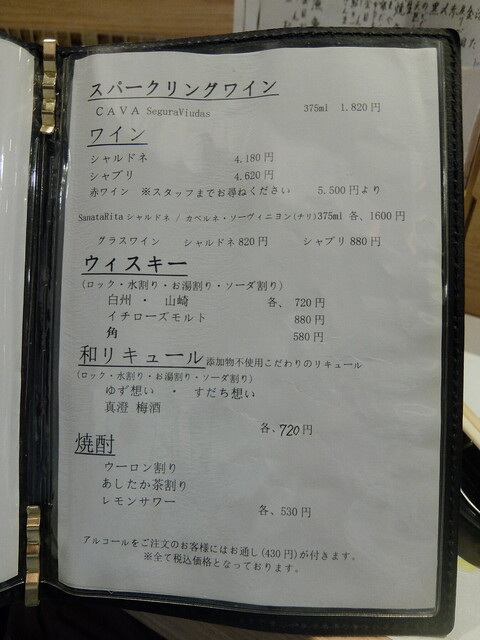 スパークリングワイン
ＣＡＶＡ SeguraViudas 375ml 1.820円
ワイン
シャルドネ 4.180円
シャブリ 4.620円
赤ワイン ※スタッフまでお尋ねください 5.500円より
SanataRita シャルドネ / カベルネ・ソーヴィニヨン(チリ)375ml 各、1600円
グラスワイン シャルドネ 820円 シャブリ 880円
ウィスキー
(ロック・水割り・お湯割り・ソーダ割り)
白州 ・ 山崎 各、 720円
イチローズモルト 880円
角 580円
和リキュール 添加物不使用こだわりのリキュール
(ロック・水割り・お湯割り・ソーダ割り)
ゆず想い ・ すだち想い
真澄 梅酒
各、720円
焼酎
ウーロン割り
あしたか茶割り
レモンサワー 各、530円
アルコールをご注文のお客様にはお通し(430円)が付きます。
※全て税込価格となっております。